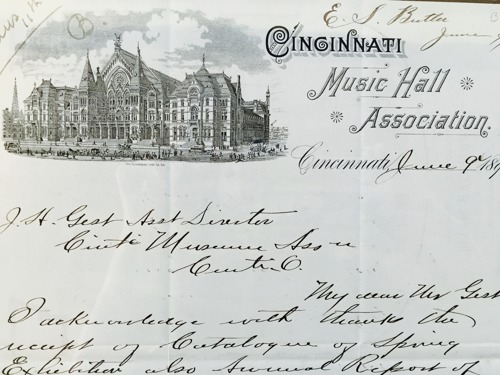 B.
E. S. Butler
June 9
Cincinnati
Music Hall
Association.
Cincinnati, June 9th 189
J. H. Gest Asst Director
Cinti Museum Ass'n
Cinti. O.
My dear Mr Gest
I acknowledge with thanks the
receipt of Catalogue of Spring
Exhibition also Annual Report of